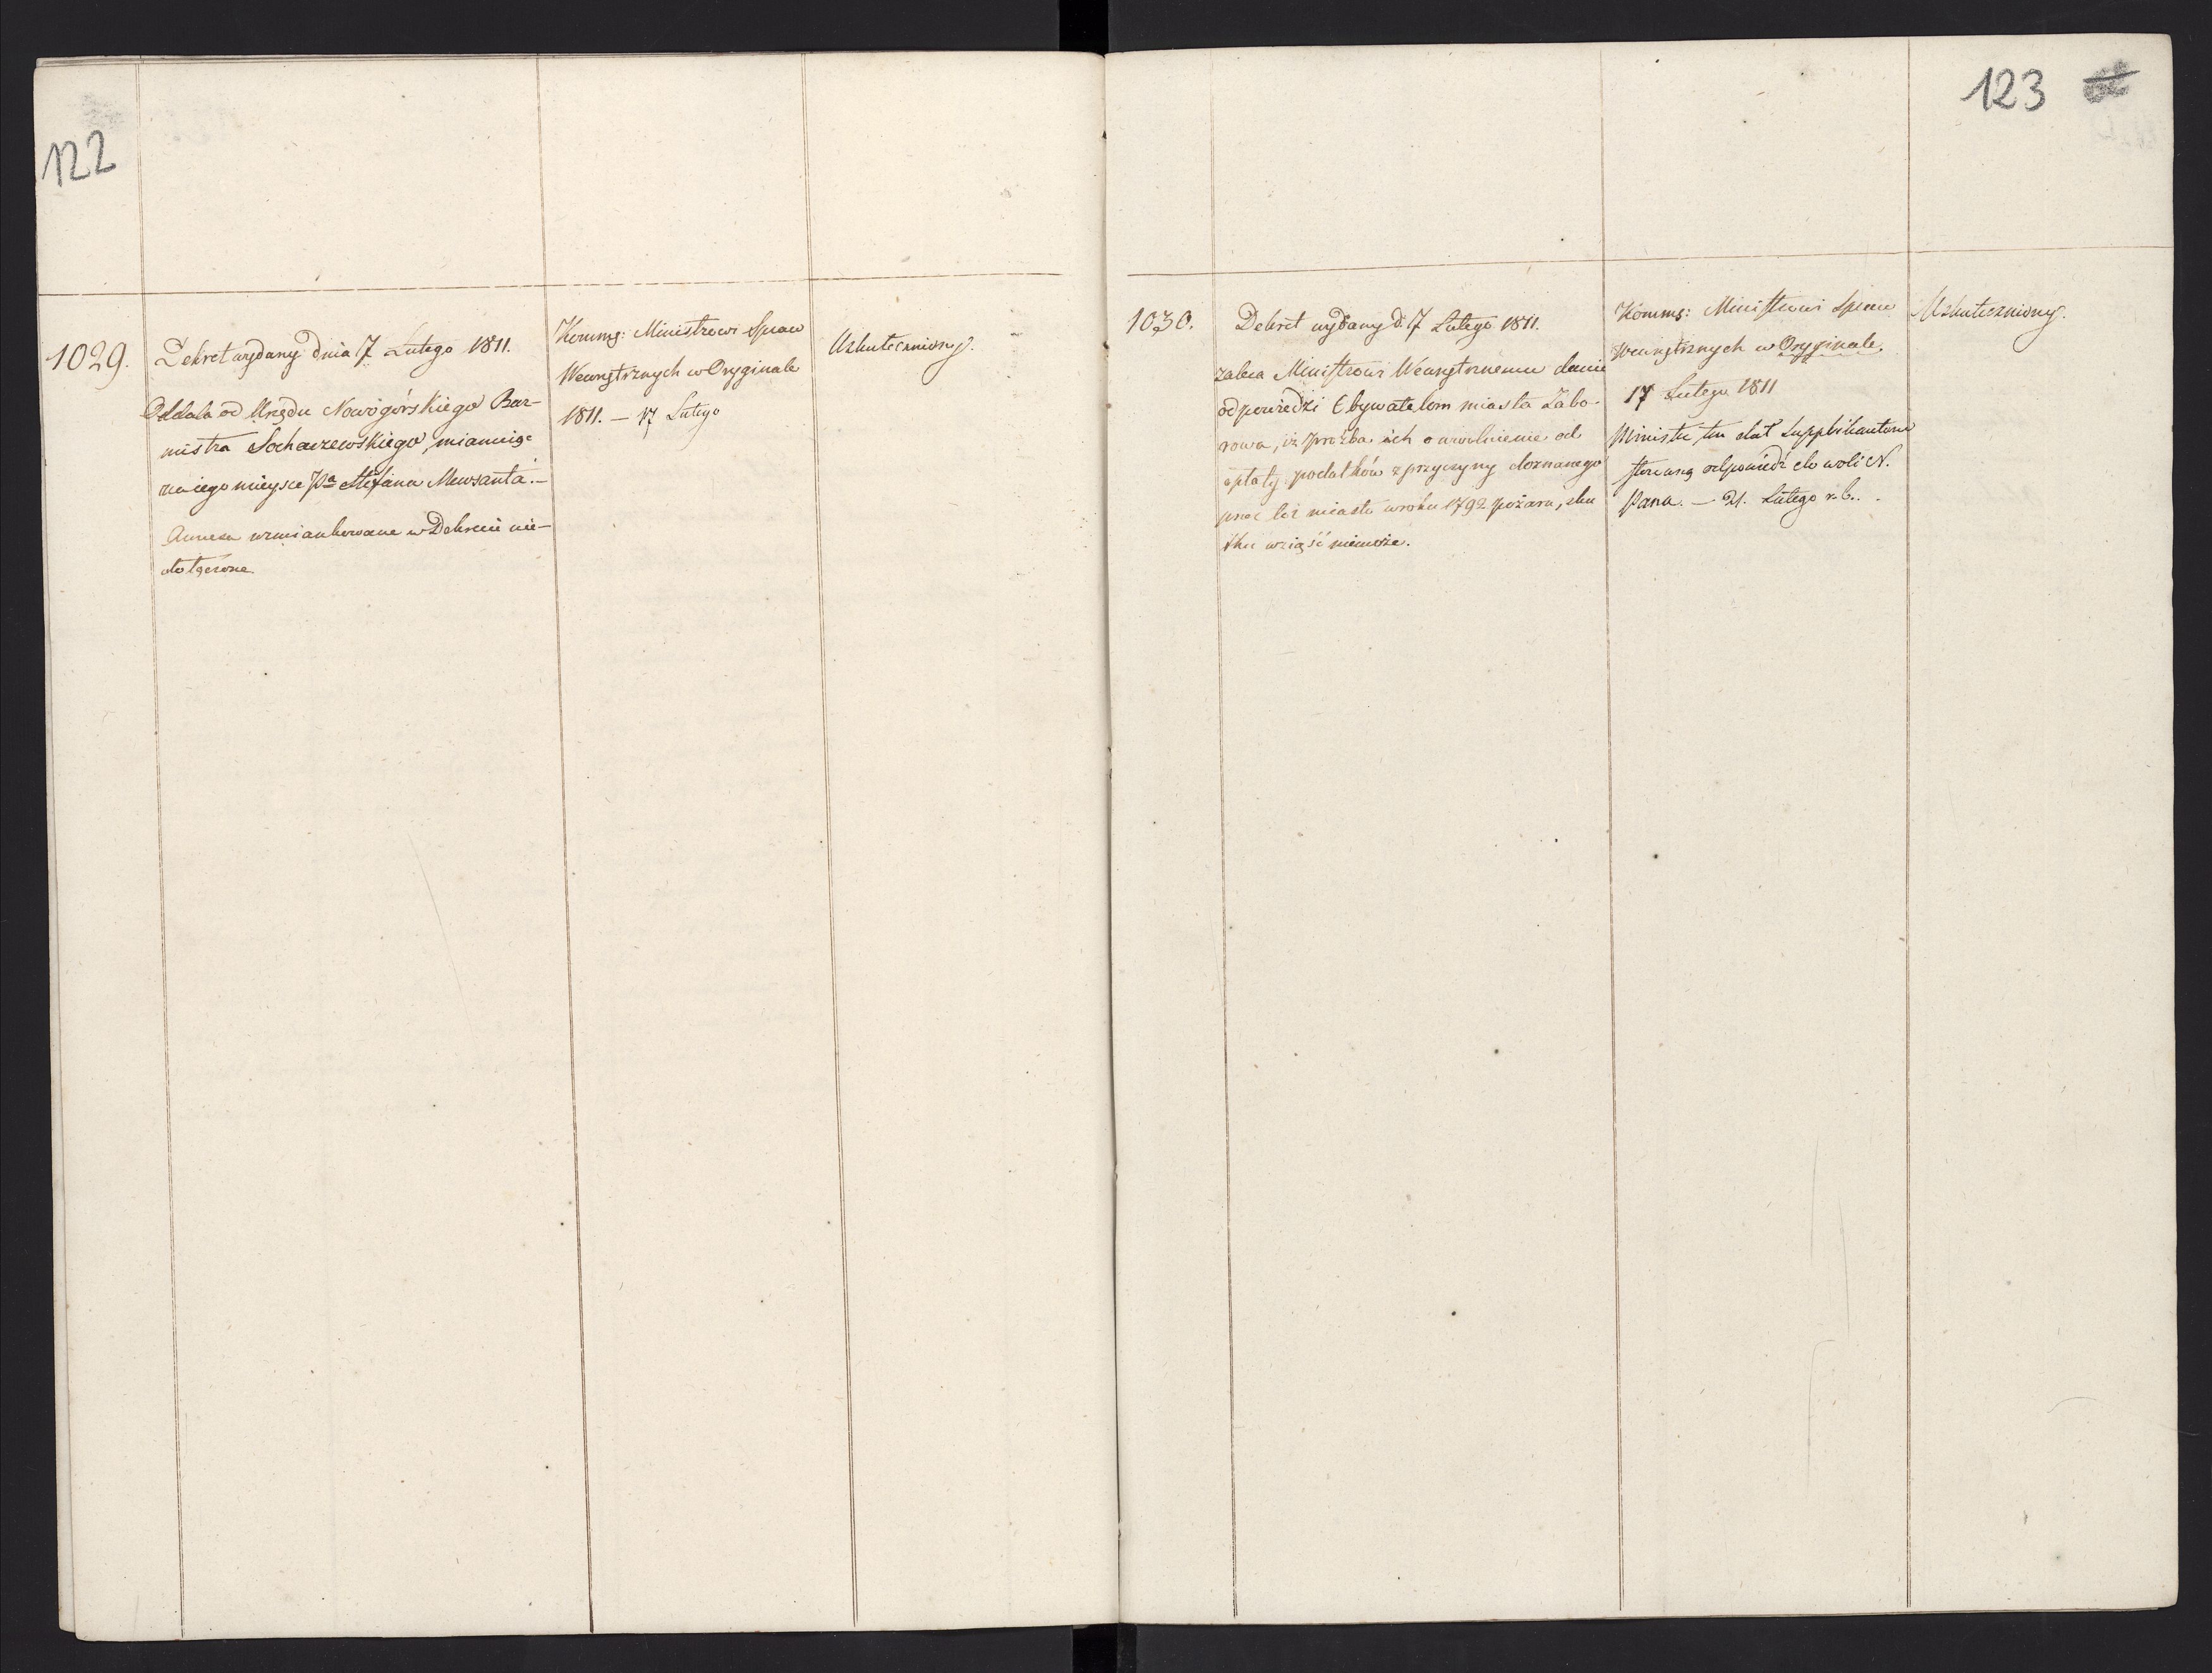 122
1029.
Dekret wydany dnia 7 Lutego 1811.
Oddala od Urzędu Nowogórskiego Bur-
mistra Sochaczewskiego, mianuiąc
na iego mieysce Pa Stefana
Annexa wzmiankowane w Dekrecie nie-
dołączone
Kommg: Ministrowi Spraw
Wewnętrznych w Oryginale
1811. — 17 Lutego
Uskuteczniony.
123
1030.
Dekret wydany d. 7 Lutego 1811.
zaleca Ministrowi Wewnętrznemu danie
odpowiedzi Obywatelom miasta Zabo-
rowa, iż prożba ich o uwolnienie od
opłaty podatków z przyczyny doznanego
przez toż miasto w roku 1792 pożaru, sku
tku wziąść niemoże.
Kommg: Ministrowi Spraw
Wewnętrznych w Oryginale
17 Lutego 1811
Minister ten dał Supplikantom
odpowiedź do woli N.
Pana. — 21. Lutego r. b.
Uskuteczniony.